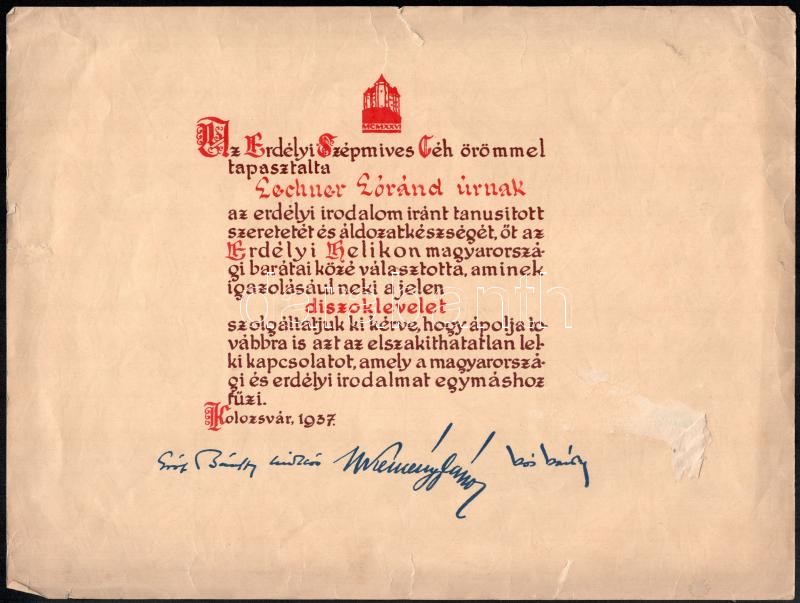 MCMXXVI
Az Erdélyi Szépmives Céh örömmel
tapasztalta
Lechner Lóránd úrnak
az erdélyi irodalom iránt tanusitott
szeretetét és áldozatkészségét, őt az
Erdélyi Helikon magyarorszá-
gi barátai közé választotta, aminek
igazolásául neki a jelen
diszoklevelet
szolgáltatjuk ki kérve, hogy ápolja to-
vábbra is azt az elszakithatatlan lel-
ki kapcsolatot, amely a magyarorszá-
gi és erdélyi irodalmat egymáshoz
fűzi.
Kolozsvár, 1937.
Gróf Bánffy Miklós Kemény János Kós Károly
darabanth